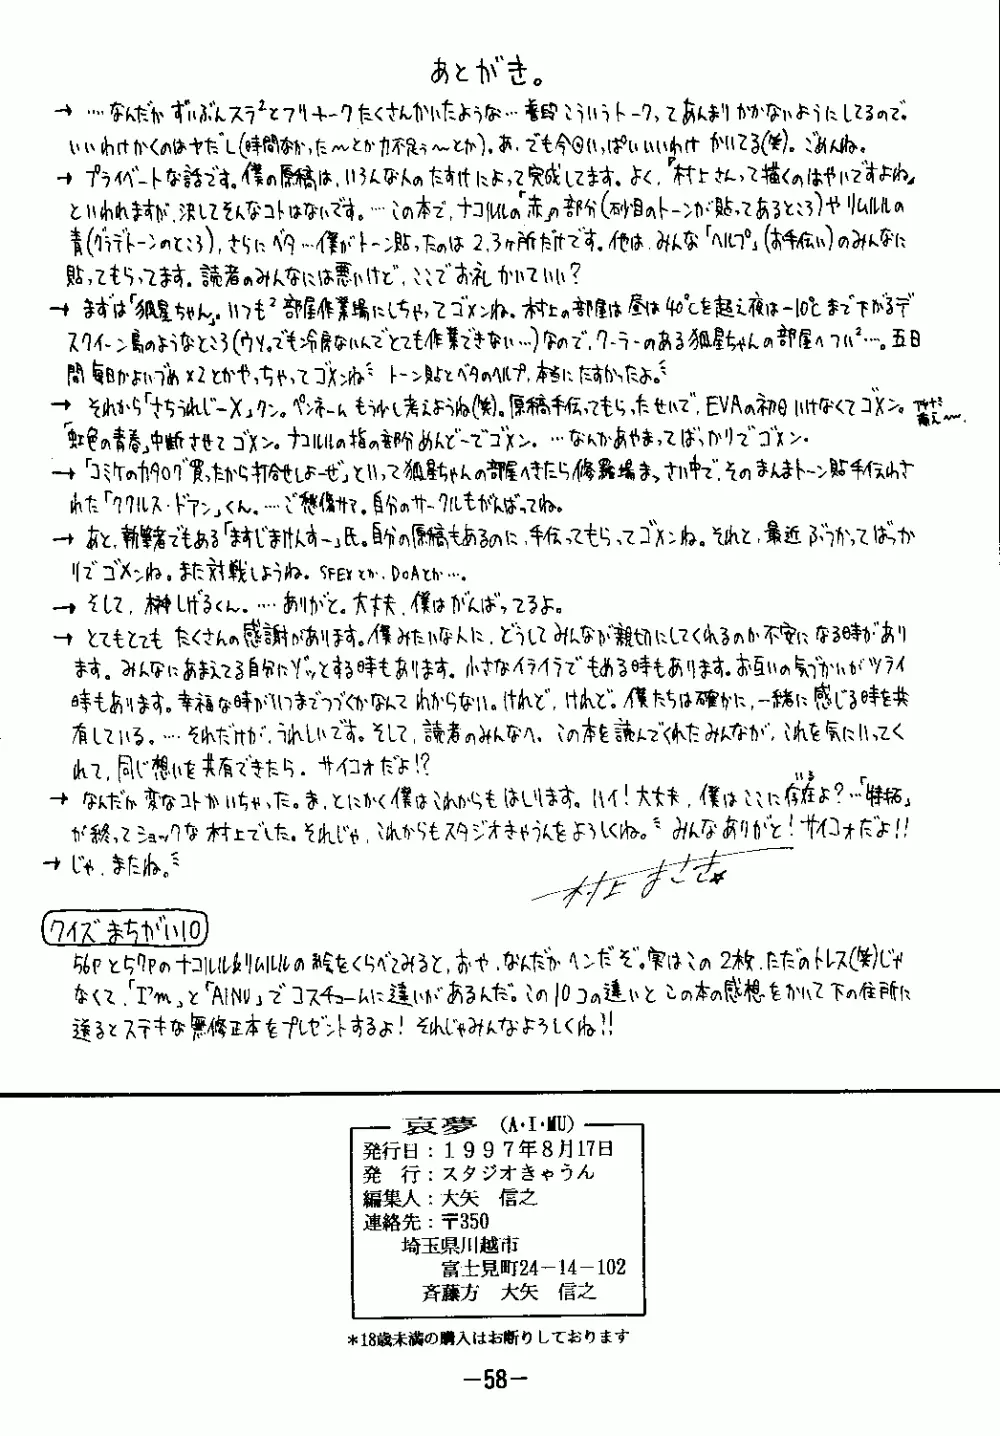 あとがき。
→ …なんだか ずいぶんスラ²とフリートークたくさんかいたような…普段こういうトークってあんまりかかないようにしてるので。
いいわけかくのはヤだし(時間なかった〜とか力不足ぅ〜とか)。あ、でも今回いっぱいいいわけ かいてる(笑)。ごめんね。
→ プライベートな話です。僕の原稿は、いろんな人のたすけによって完成してます。よく、「村上さんって描くのはやいですよね」
といわれますが、決してそんなコトはないです。…この本で、ナコルルの「赤」の部分(砂目のトーンが貼ってあるところ)やリムルルの
青(グラデトーンのところ)、さらにベタ…僕がトーン貼ったのは2.3ヶ所だけです。他は、みんな「ヘルプ」(お手伝い)のみんなに
貼ってもらってます。読者のみんなには悪いけど、ここでお礼かいていい?
→ まずは「狐星ちゃん」。いつも² 部屋作業場にしちゃってゴメンね。村上の部屋は昼は40℃を超え夜は-10℃まで下がるデ
スクイーン島のようなところ(ウソ。でも冷房ないんでとても作業できない…)なので、クーラーのある狐星ちゃんの部屋へつい²…。五日
間毎日かよいづめ×2とかやっちゃってゴメンね トーン貼とベタのヘルプ、本当にたすかったよ。
→ それから「さちうれじーX」クン。ペンネームもう少し考えようね(笑)。原稿手伝ってもらったせいで、EVAの初日いけなくてゴメン。
「虹色の青春」中断させてゴメン。ナコルルの指の部分めんどーでゴメン。…なんかあやまってばっかりでゴメン。
→「コミケのカタログ買ったから打合せしよーぜ」といって狐星ちゃんの部屋へきたら修羅場まっさい中で、そのまんまトーン貼手伝わさ
れた「ククルス・ドアン」くん。…ご愁傷サマ。自分のサークルもがんばってね。
→ あと、執筆者でもある「ますじまけんすー」氏。自分の原稿もあるのに、手伝ってもらってゴメンね。それと、最近ぶつかってばっか
りでゴメンね。また対戦しようね。SFEXとか、DOAとか…。
→ そして、榊しげるくん。…ありがと。大丈夫、僕はがんばってるよ。
→ とてもとても たくさんの感謝があります。僕みたいな人に、どうしてみんなが親切にしてくれるのか不安になる時があり
ます。みんなにあまえてる自分にゾッとする時もあります。小さなイライラでもめる時もあります。お互いの気づかいがツライ
時もあります。幸福な時がいつまでつづくかなんてわからない。けれど、けれど。僕たちは確かに、一緒に感じる時を共
有している。…それだけが、うれしいです。そして、読者のみんなへ、この本を読んでくれたみんなが、これを気にいってく
れて、同じ想いを共有できたら、サイコォだよ!?
→ なんだか変なコトかいちゃった。ま、とにかく僕はこれからもはしります。ハイ!大丈夫、僕はここに存在よ?…「特拓」
いる
が終ってショックな村上でした。それじゃ、これからもスタジオきゃうんをよろしくね。みんなありがと!サイコォだよ!!
→ じゃ、またね。
村上 まさき
クイズ まちがい10
56Pと57Pのナコルル&リムルルの絵をくらべてみると、おや、なんだかヘンだぞ。実はこの2枚、ただのトレス(笑)じゃ
なくて、「I'm」と「AINU」でコスチュームに違いがあるんだ。この10コの違いとこの本の感想をかいて下の住所に
送るとステキな無修正本をプレゼントするよ! それじゃみんなよろしくね!!
哀夢 (A・I・MU)
発行日:1997年8月17日
発 行:スタジオきゃうん
編集人:大矢 信之
連絡先:〒350
埼玉県川越市
富士見町24-14-102
斉藤方 大矢 信之
*18歳未満の購入はお断りしております
-58-